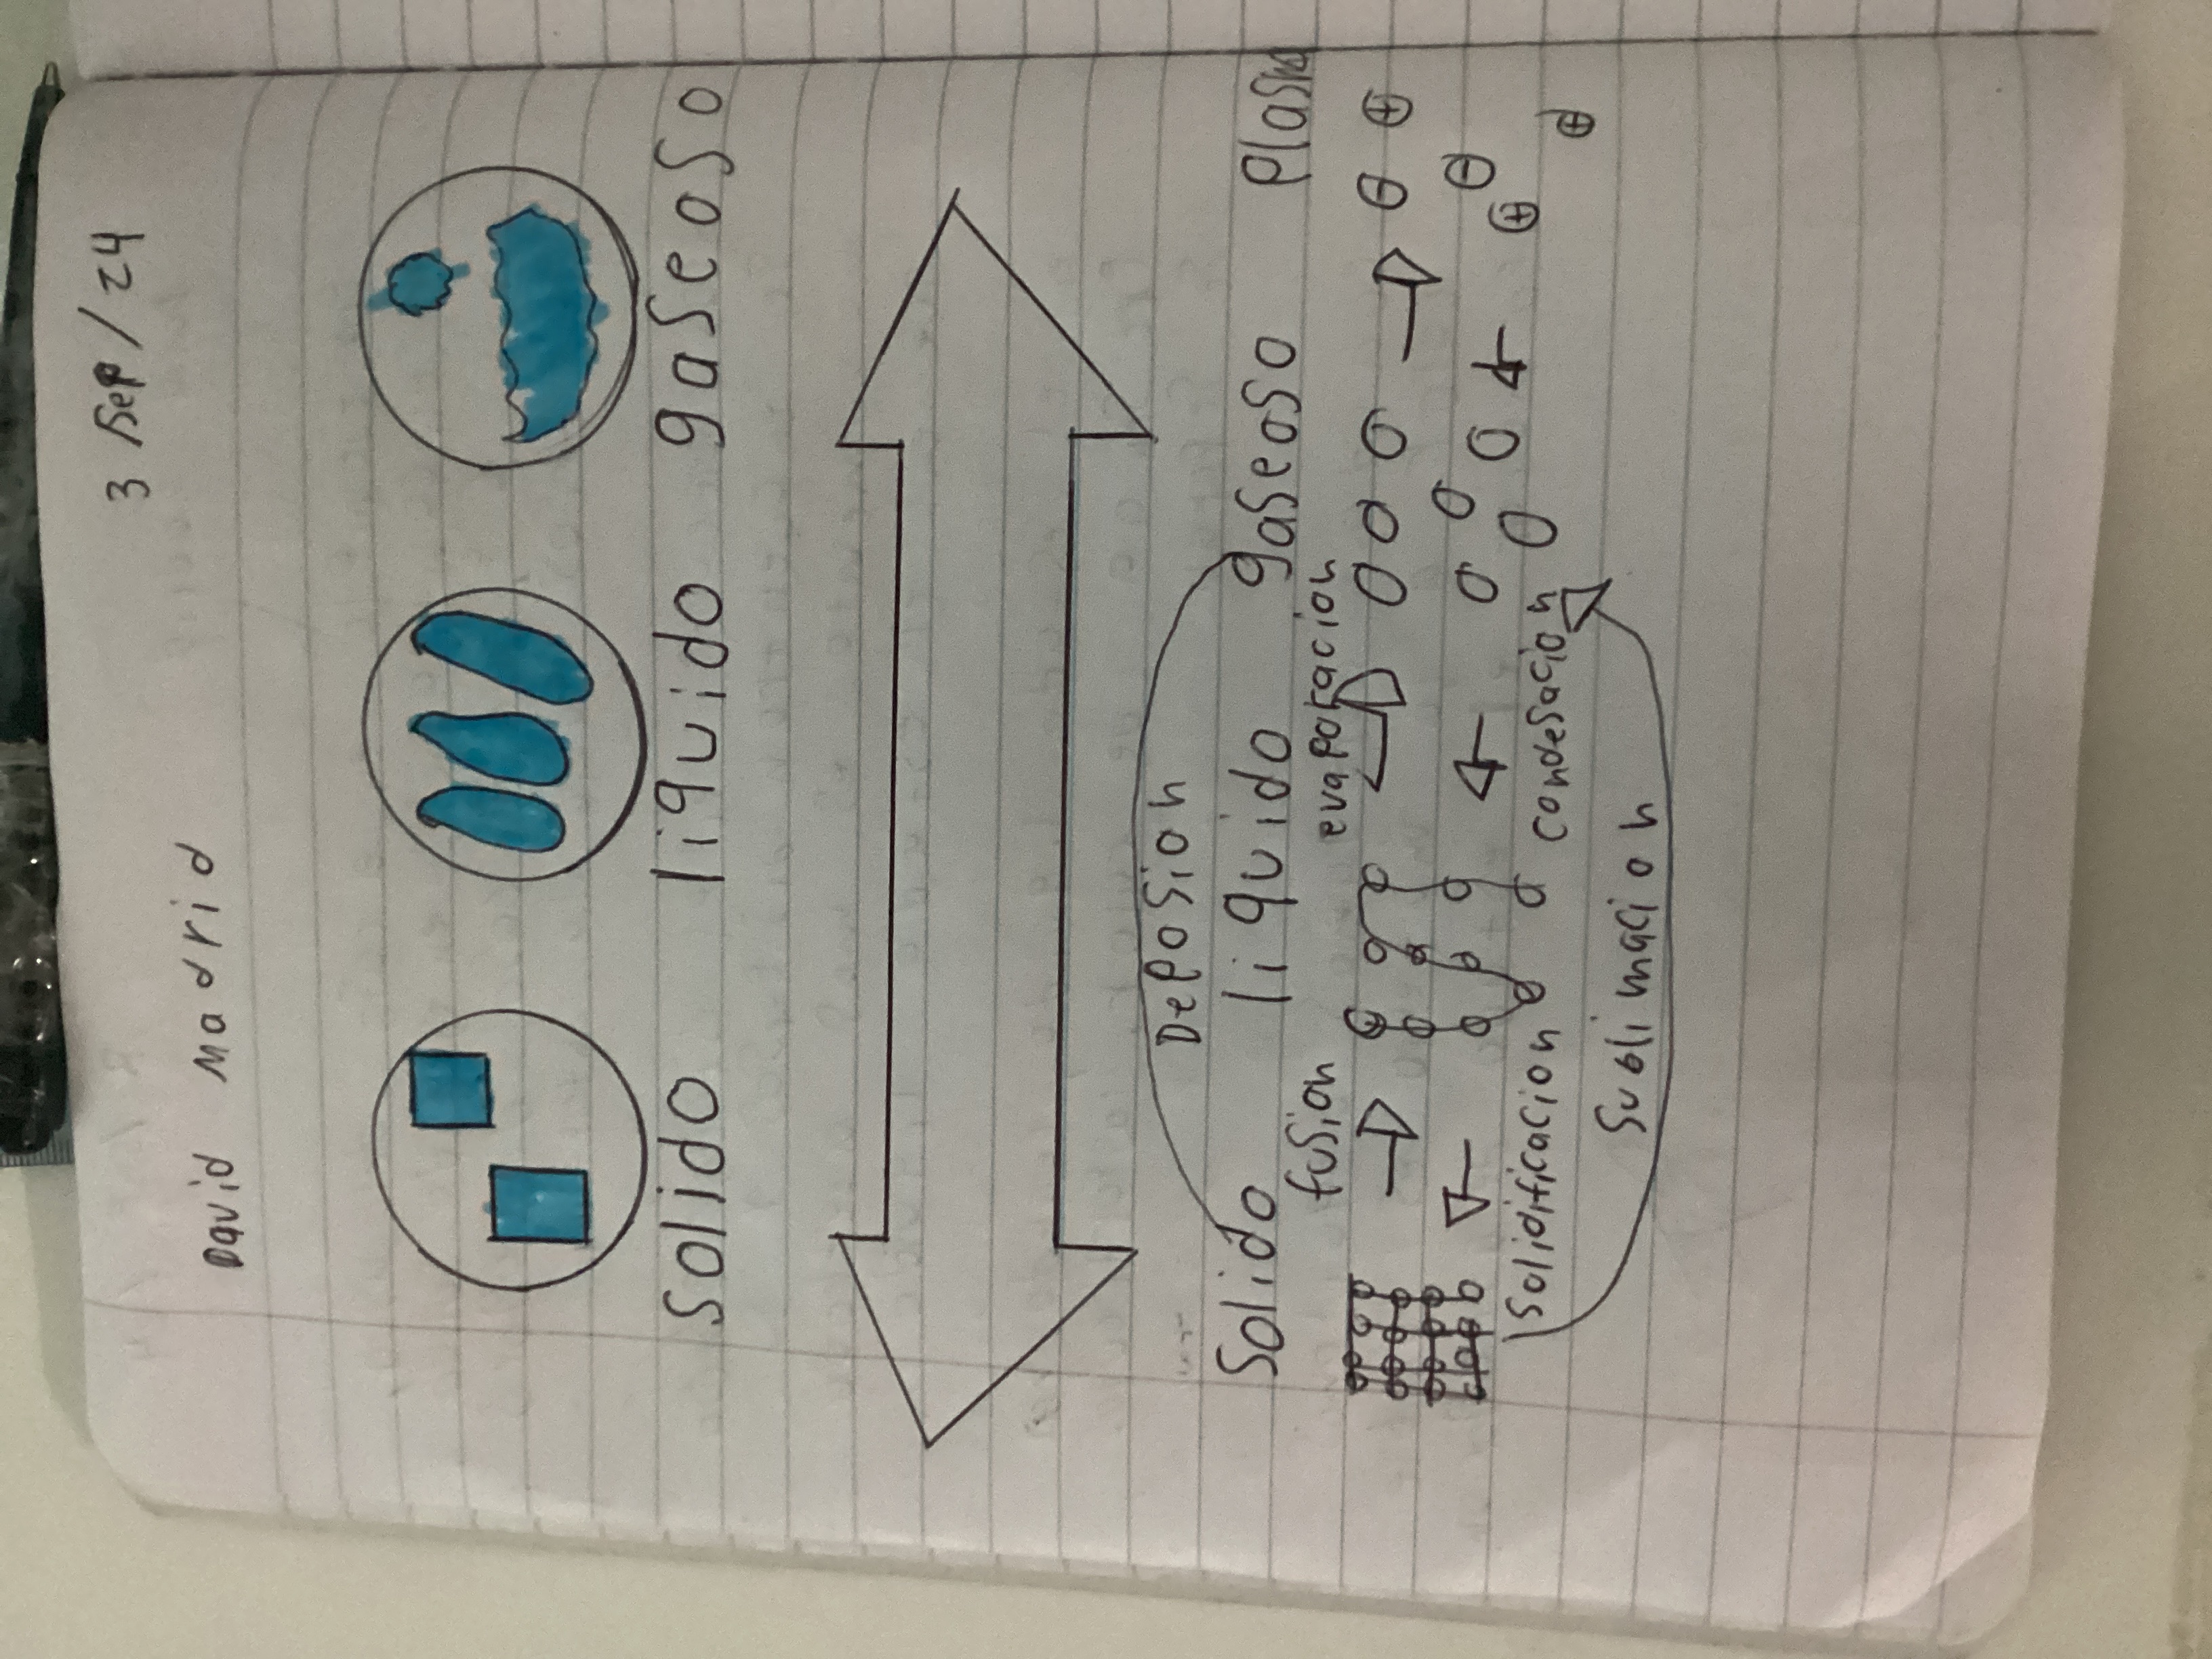 3 Sep/24
David Madrid
solido liquido gaseoso
Deposion
Solido liquido gaseoso Plasm
fusion evaporacion
Solidificacion condesacion
Sublimacion